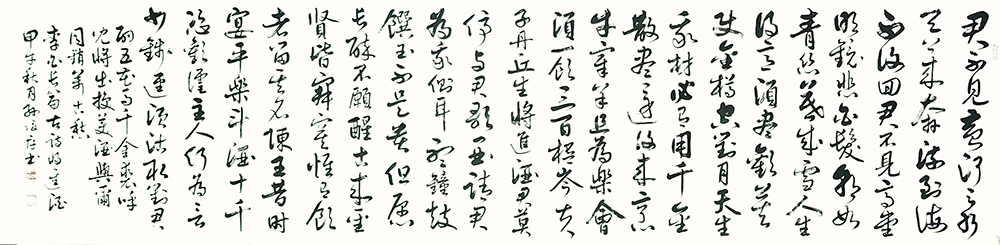 君不見黃河之水
天上來奔流到海
不復回君不見高堂
明鏡悲白髮朝如
青絲暮成雪人生
得意須盡歡莫
使金樽空對月天生
我材必有用千金
散盡還復來烹
羊宰牛且為樂會
須一飲三百杯岑夫
子丹丘生將進酒君莫
停與君歌一曲請君
為我傾耳聽鐘鼓
饌玉不足貴但願
長醉不願醒古來聖
賢皆寂寞惟有飲
者留其名陳王昔時
宴平樂斗酒十千
恣歡謔主人何為言
少錢徑須沽取對君
酌五花馬千金裘呼
兒將出換美酒與爾
同銷萬古愁
李白長篇古詩將進酒
甲午秋月孫書